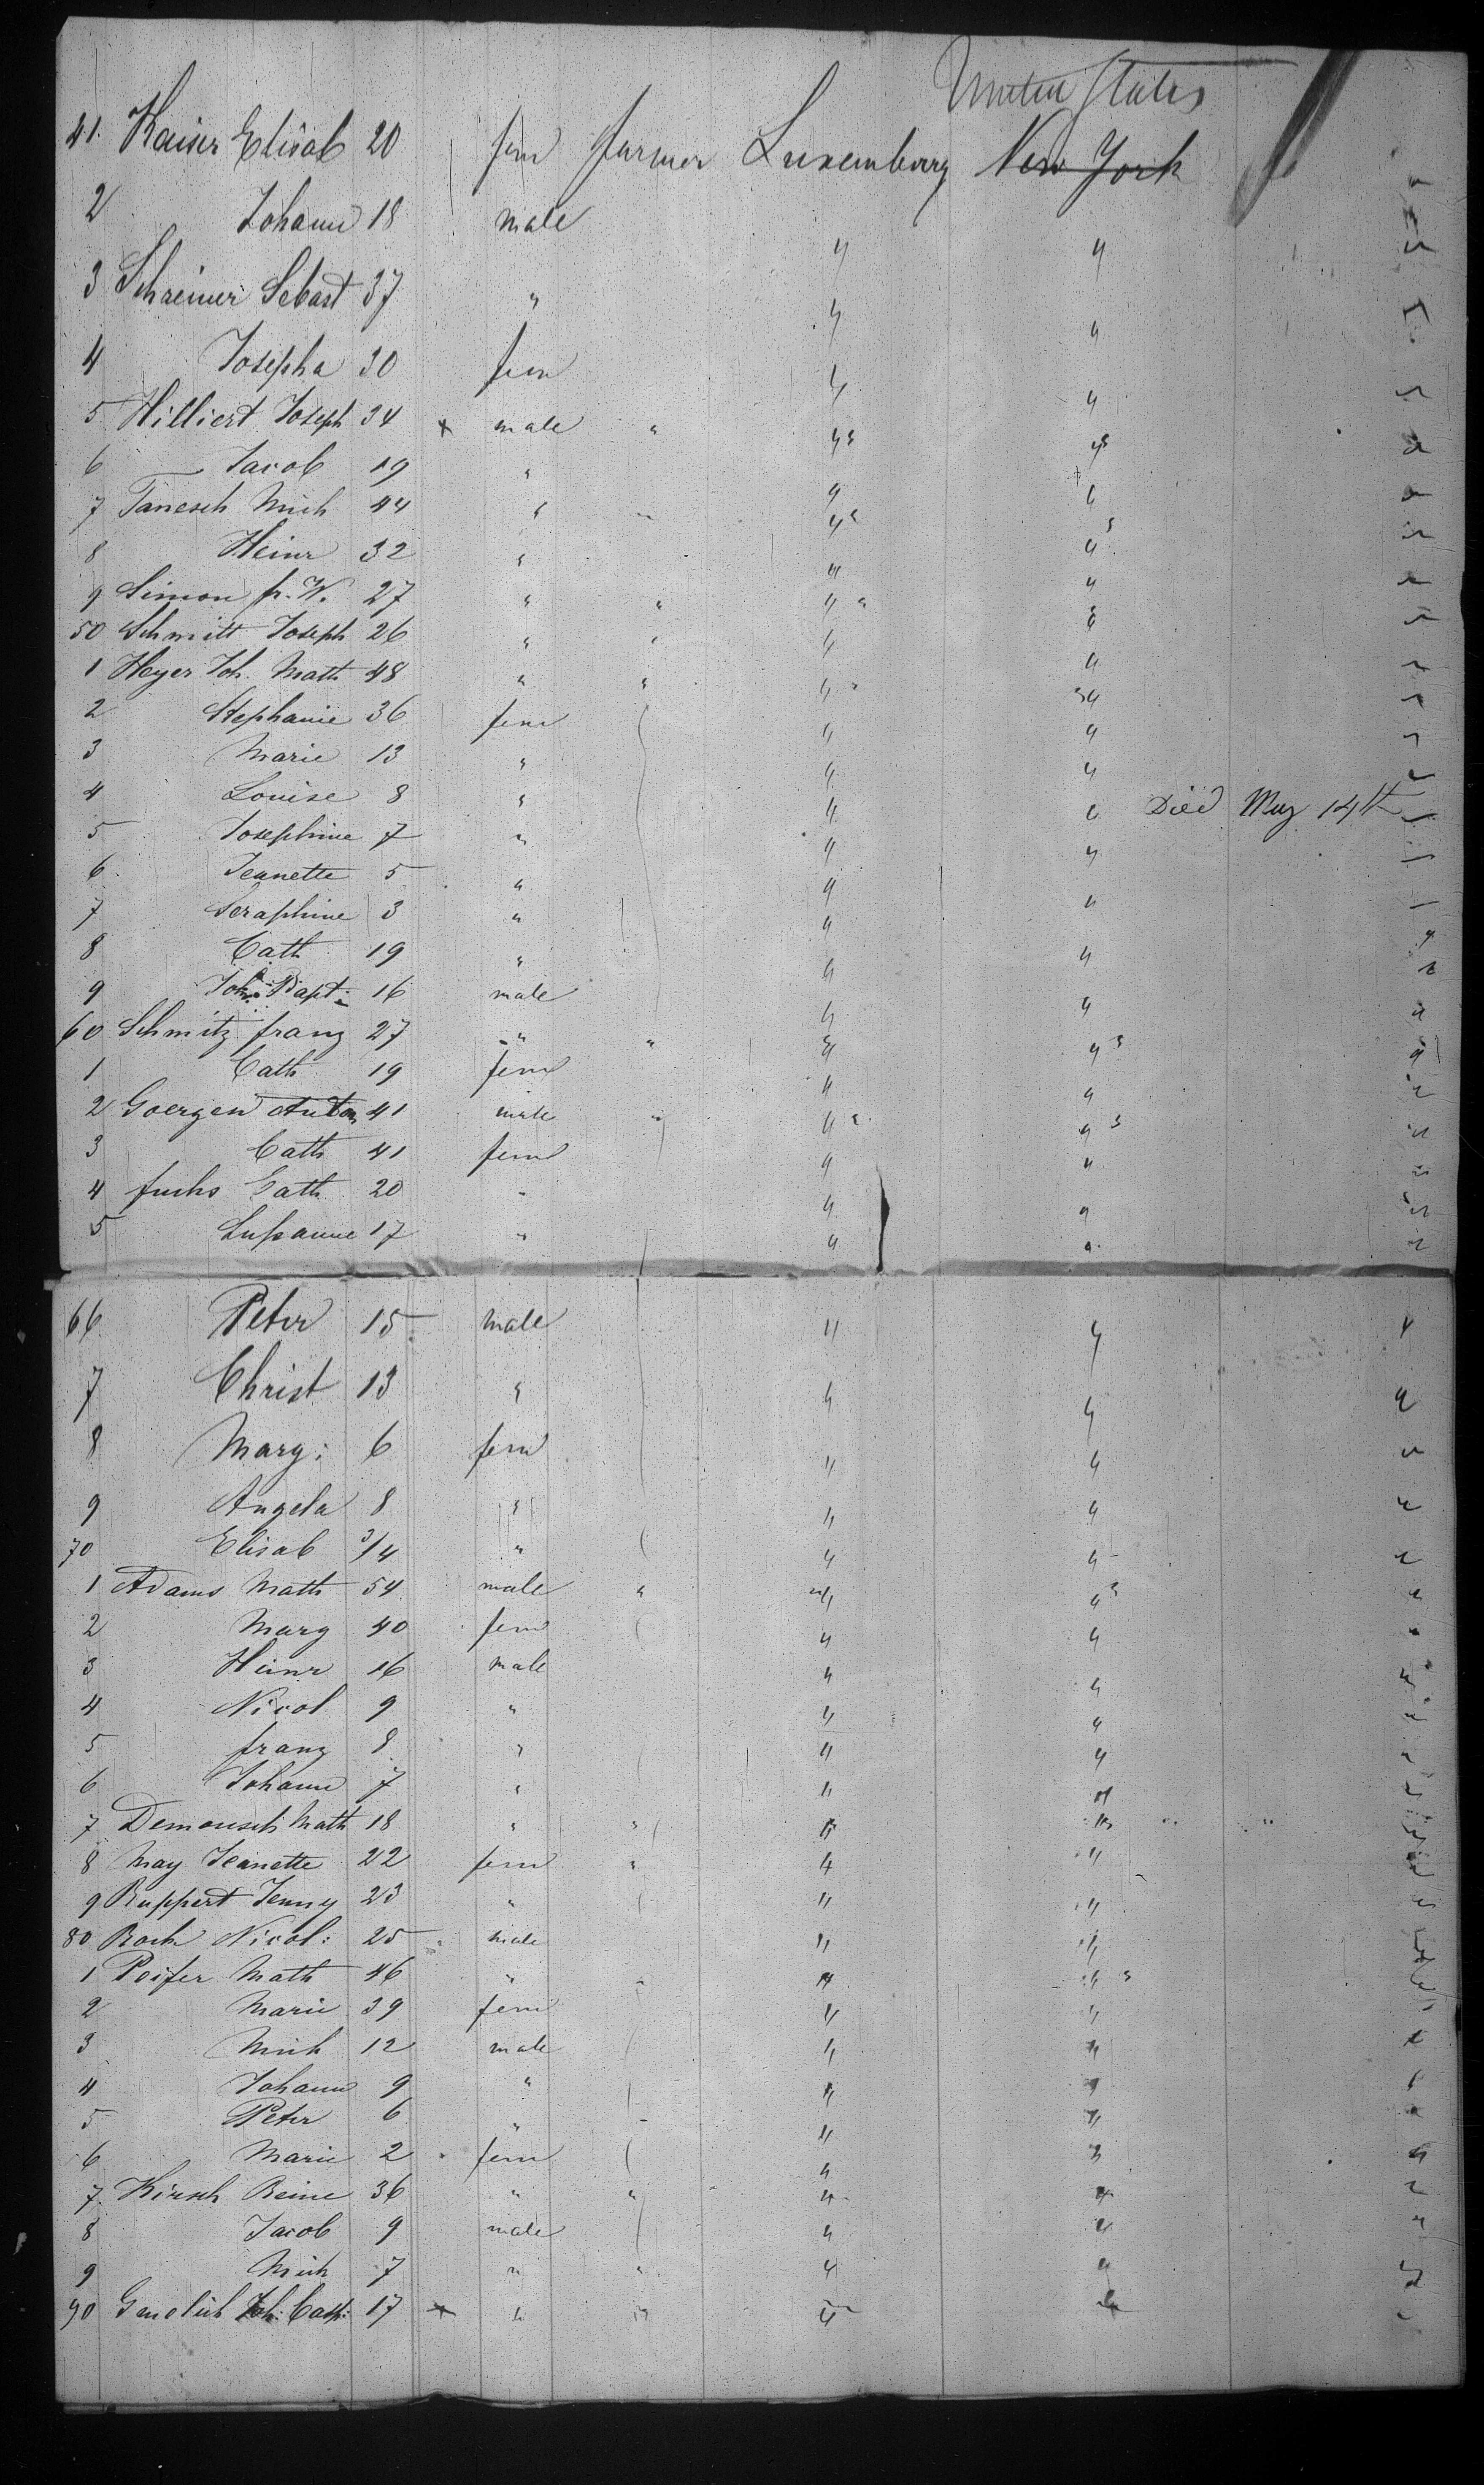 United States
41. Kaiser Elisab 20 fem farmer Luxembourg New York
2 Johann 18 male " "
3 Schreiner Sebast 37 " " "
4 Josepha 30 fem " "
5 Hilliert Joseph 34 x male " " "
6 Jacob 19 " " "
7 Tanesch Mich 44 " " " "
8 Heinr 32 " " "
9 Simon fr. W. 27 " " " "
50 Schmitt Joseph 26 " " " "
1 Heyer Joh. Math 48 " " " "
2 Stephanie 36 fem " "
3 Marie 13 " " "
4 Louise 8 " " " Died May 14th
5 Josephine 7 " " "
6 Jeanette 5 " " "
7 Seraphine 3 " " "
8 Cath 19 " " "
9 Joh. Bapt: 16 male " "
60 Schmitz franz 27 " " " "
1 Cath 19 fem " "
2 Goergen Anton 41 male " " "
3 Cath 41 fem " "
4 fuchs Cath 20 " " "
5 Sussanne 17 " " "
66 Peter 15 male " "
7 Christ 13 " " "
8 Marg: 6 fem " "
9 Angela 8 " " "
70 Elisab 3/4 " " "
1 Adams Math 54 male " " "
2 Marg 40 fem " "
3 Heinr 16 male " "
4 Nicol 9 " " "
5 franz 8 " " "
6 Johann 7 " " "
7 Demousch Math 18 " " " "
8 May Jeanette 22 fem " " "
9 Ruppert Jenny 23 " " "
80 Nicol: 25 male " "
1 Peifer Math 46 " " " "
2 Marie 39 fem " "
3 Mich 12 male " "
4 Johann 9 " " "
5 Peter 6 " " "
6 Marie 2 fem " "
7 Kirsch Reine 36 " " " "
8 Jacob 9 male " "
9 Mich 7 " " " "
90 Joh: Cath: 17 x " " " "